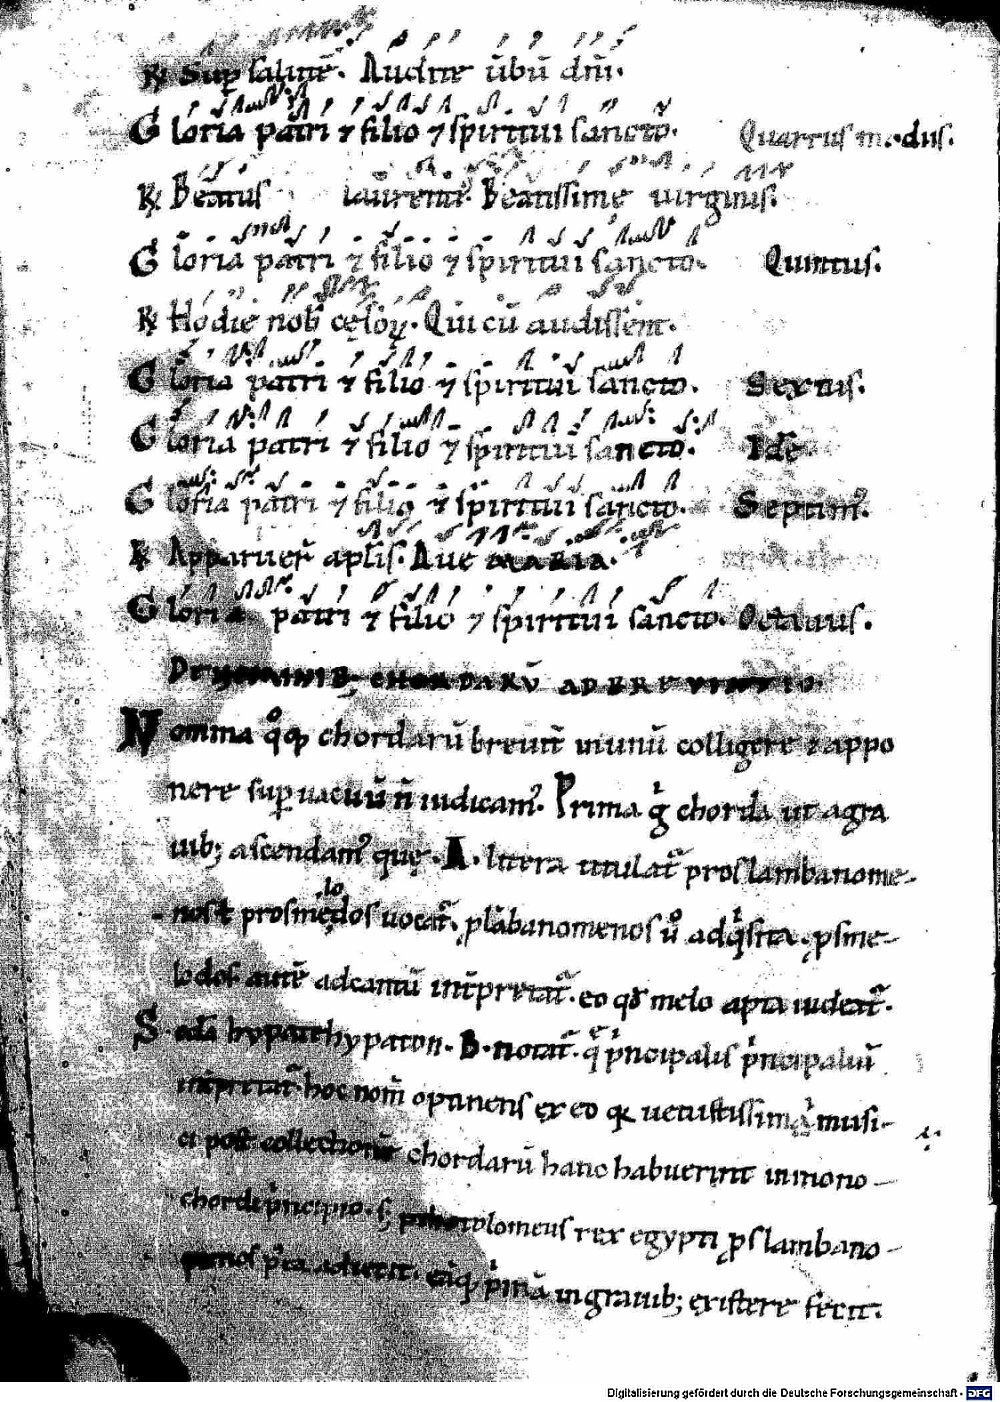 R̸ Sup salutē. Audite ūbū dñi.
Gloria patri ⁊ filio ⁊ spiritui sancto. Quartus modus.
R̸ Beatus laurenti. Beatissime uirginis.
Gloria patri ⁊ filio ⁊ spiritui sancto. Quintus.
R̸ Hodie nob cęlorꝝ. Qui cū audissent.
Gloria patri ⁊ filio ⁊ spiritui sancto. Sextus.
Gloria patri ⁊ filio ⁊ spiritui sancto. Idē
Gloria patri ⁊ filio ⁊ spiritui sancto. Septim᷒.
R̸ Apparuer̄ aplis. Aue MARIA.
Gloria patri ⁊ filio ⁊ spiritui sancto. Octauus.
DE NOMINIB; CHORDARŪ ADBREVIATIO
Nomina qͦqꝫ chordarū breuit̄ inunū colligere ⁊ appo
nere sup uacuū ñ iudicam᷒. Prima gͥ chorda ut agra
uib; ascendam᷒ quę .A. litera titulat᷑ proslambanome-
nos ł prosmęlodos uocat᷑. plābanomenos u̅ͦ adqͥsita. ꝓsme-
lodos autē adcantū int̄pretat᷑. eo qđ melo apta uideat᷑.
Scđa hypate hypaton .B. notat᷑. q̄ pͥncipalis pͥncipaliū
int̄pretat᷑ hoc nom̄ optinens ex eo qꝫ uetustissimi musi-
ci post collectionē chordarū hanc habuerint inmono-
chordi pͥncipio. s; ptholomeus rex egypti ꝓslambano-
menos pͥus adiecit. eāqꝫ pͥmā ingrauib; existere fecit.
Digitalisierung gefördert durch die Deutsche Forschungsgemeinschaft - DFG